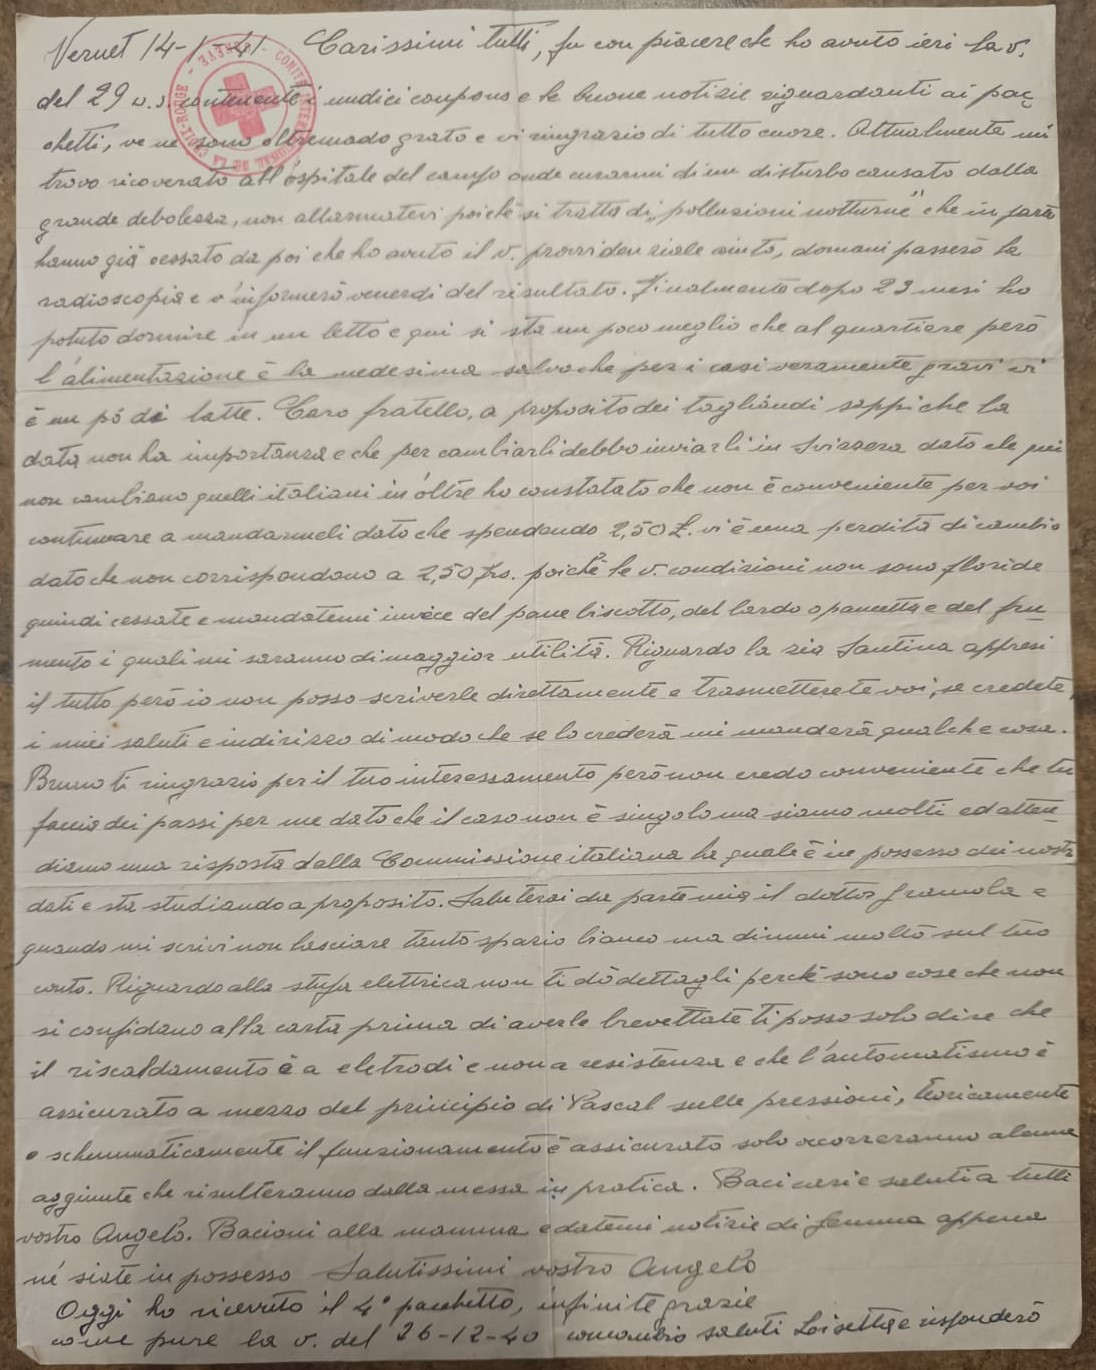 Vernet 14-1-41- Carissimi tutti, fu con piacere che ho avuto ieri la v.
del 29 u.s. contenente i undici coupons e le buone notizie riguardanti ai pac
chetti, ve ne sono oltremodo grato e vi ringrazio di tutto cuore. Attualmente mi
trovo ricoverato all'ospitale del campo onde curarmi di un disturbo causato dalla
grande debolezza, non allarmatevi poichè si tratta di „pollusioni notturne" che in parte
hanno già cessato da poi che ho avuto il v. provvidenziale aiuto, domani passerò la
radioscopia e v'informerò venerdi del risultato. Finalmente dopo 23 mesi ho
potuto dormire in un letto e qui si sta un poco meglio che al quartiere però
l'alimentazione è la medesima salvo che per i casi veramente gravi vi
è un pó di latte. Caro fratello, a proposito dei tagliandi sappi che la
data non ha importanza e che per cambiarli debbo inviarli in Svizzera dato che qui
non cambiano quelli italiani in'oltre ho constatato che non è conveniente per voi
continuare a mandarmeli dato che spendendo 2,50 £. vi è una perdita di cambio
dato che non corrispondono a 2,50 frs. poichè le v. condizioni non sono floride
quindi cessate e mandatemi invece del pane biscotto, del lardo o pancetta e del fru-
mento i quali mi saranno di maggior utilità. Riguardo la zia Santina appresi
il tutto però io non posso scriverle direttamente e trasmetterete voi, se credete,
i miei saluti e indirizzo di modo che se lo crederà mi manderà qualche cosa.
Bruno ti ringrazio per il tuo interessamento però non credo conveniente che tu
faccia dei passi per me dato che il caso non è singolo ma siamo molti ed atten-
diamo una risposta dalla Commissione italiana la quale è in possesso dei nostri
dati e sta studiando a proposito. Saluterai da parte mia il dottor Gramola e
quando mi scrivi non lasciare tanto spazio bianco ma dimmi molto sul tuo
conto. Riguardo alla stufa elettrica non ti dò dettagli perchè sono cose che non
si confidano alla carta prima di averle brevettate ti posso solo dire che
il riscaldamento è a eletrodi e non a resistenza e che l'automatismo è
assicurato a mezzo del principio di Pascal sulle pressioni, teoricamente
e schemmaticamente il funzionamento è assicurato solo occorreranno alcune
aggiunte che risulteranno dalla messa in pratica. Baci cari e saluti a tutti
vostro Angelo. Bacioni alla mamma e datemi notizie di Gemma appena
né siate in possesso Salutissimi vostro Angelo
Oggi ho ricevuto il 4° pacchetto, infinite grazie
come pure la v. del 26-12-40 contraccambio saluti Loisetta e risponderò
COMITÉ INTERNATIONAL DE LA CROIX-ROUGE - GENÈVE -